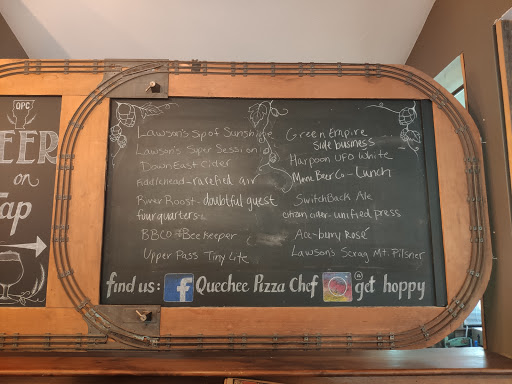 QPC
BEER
on
Tap
Lawson's Sip of Sunshine
Lawson's Super Session
DownEast Cider
Fiddlehead - rarefied air
River Roost - doubtful guest
fourquarters -
BBCO - Bee keeper
Upper Pass Tiny Lite
Green Empire
Side business
Harpoon UFO White
Maine Beer Co - Lunch
SwitchBack Ale
citizen cider - unified press
Ace - bunny Rosé
Lawson's Scrag Mt. Pilsner
find us: f Quechee Pizza Chef get hoppy